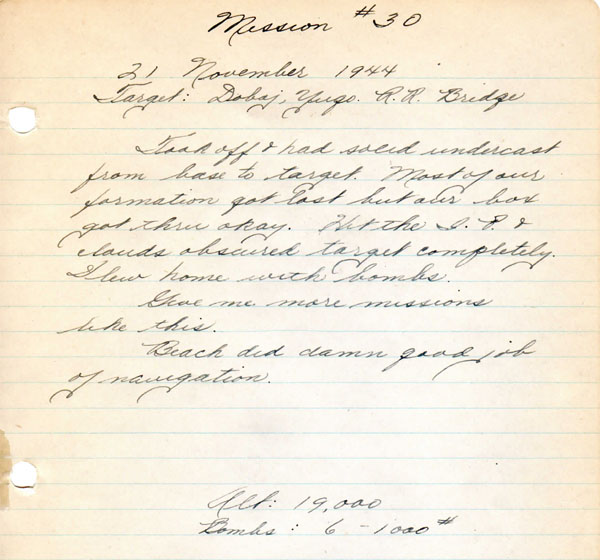 Mission #30
21 November 1944
Target: Dobaj, Yugo. R.R. Bridge
Took off & had solid undercast
from base to target. Most of our
formation got lost but our box
got thru okay. Hit the I.P. &
clouds obscured target completely.
Flew home with bombs.
Give me more missions
like this.
Beach did damn good job
of navigation.
Alt: 19,000
Bombs: 6 - 1000#